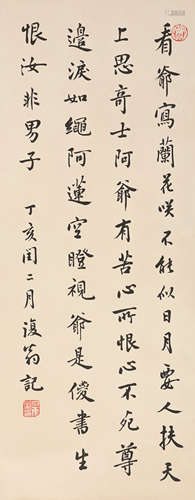 看爺寫蘭花哭不能似日月要人扶天
上思奇士阿爺有苦心所恨心不死尊
邊淚如繩阿蓮空瞪視爺是傻書生
恨汝非男子
丁亥閏二月復翁記